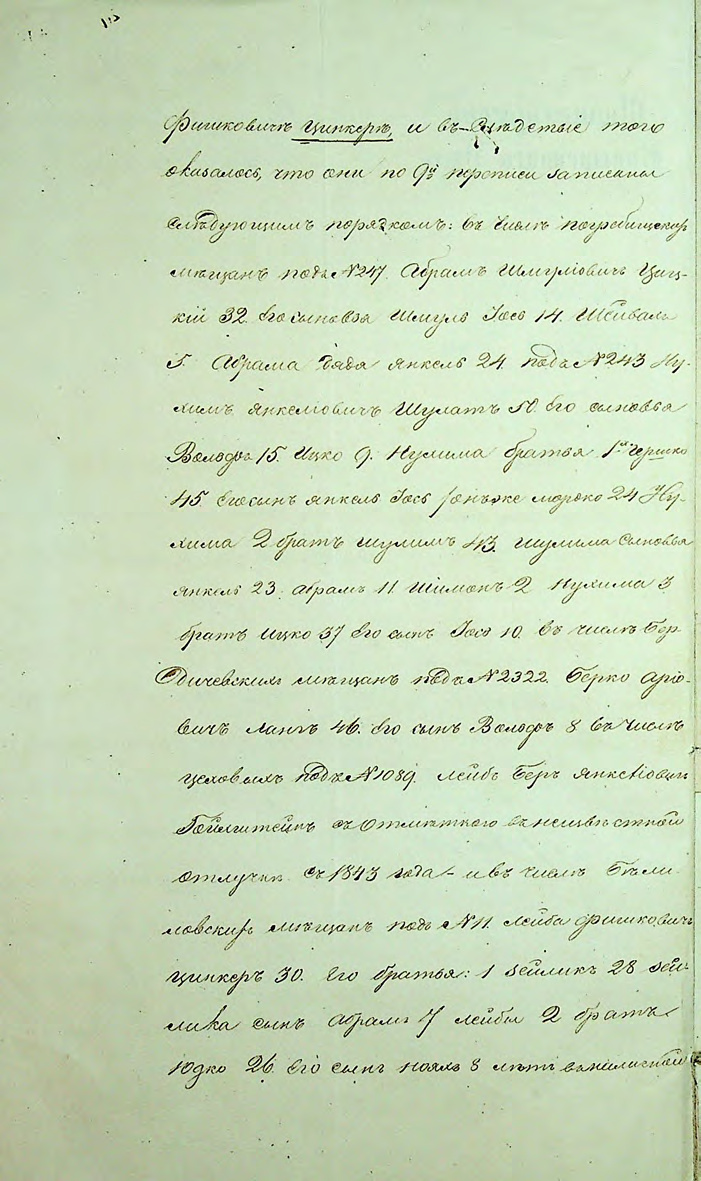 Фишковичъ Цинкеръ, и въ Слѣдствіе того
оказалось, что они по 9й переписи записаны
слѣдующимъ порядкомъ: въ числѣ погребищскихъ
мѣщанъ подъ №247. Абрамъ Шмулiовичъ Циц-
кій 32. Его сыновья Шмуль Іось 14. Шейваль
5. Абрама дядя Янкель 24. подъ №243 Ну-
химъ Янкелiовичъ Шулатъ 50. Его сыновья
Волько 15. Ицко 9. Нухима братья 1й Гершко
45. Его сынъ Янкель Іось онъ же Мордко 24 Ну-
хима 2. братъ Шулимъ 43. Шулима Сыновья
Янкель 23. Абрамъ 11 Шимонъ 2 Нухима 3
братъ Ицко 37 Его сынъ Іось 10. въ числѣ Бер-
дичевскихъ мѣщанъ подъ №2322. Берко Аріо-
вичъ Лангъ 46. Его сынъ Волько 8 въ числѣ
цеховыхъ подъ №1089. Лейбъ Беръ Янкелiовичъ
съ отмѣткою въ неизвѣстной
отлучкѣ съ 1843 года – и въ числѣ Бѣли-
ловскихъ мѣщанъ подъ №11. Лейба Фишковичъ
Цинкеръ 30. Его братья: 1 Зейликъ 28 Зей-
лика сынъ Абрамъ 7 Лейбы 2 братъ
Юдко 26 Его сынъ 8 лѣтъ